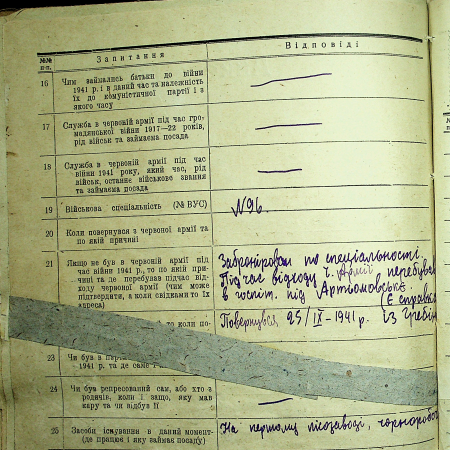 №№ п.п.
Запитання
Відповіді
16
Чим займались батьки до війни
1941 р. і в даний час та належність
їх до комуністичної партії і з
якого часу
17
Служба в червоній армії під час гро-
медянської війни 1917—22 років,
рід військ та займаєма посада
18
Служба в червоній армії під час
війни 1941 року, який час, рід
військ, останнє військове звання
та займаєма посада
19
Військова спеціальність (№ ВУС)
№96.
20
Коли повернувся з червоної армії та
по якій причині
21
Якщо не був в червоній армії під
час війни 1941 р., то по якій при-
чині та де перебував підчас від-
ходу червоної армії (чим може
підтвердити, а коли свідками то їх
адреса)
Забронірован по спеціальності.
Під час відходу ч. Армії перебував
в госпіт. під Артіомовськ.
(Є справка
то коли по-
Повернувся 25/IX-1941 р. із
23
Чи був в
1941 р. та де саме
24
Чи був репресований сам, або хто з
родичів, коли і защо, яку мав
кару та чи відбув її
25
Засоби існування в даний момент-
(де працює і яку займає посаду)
На першому лісозаводі, чорноробоч